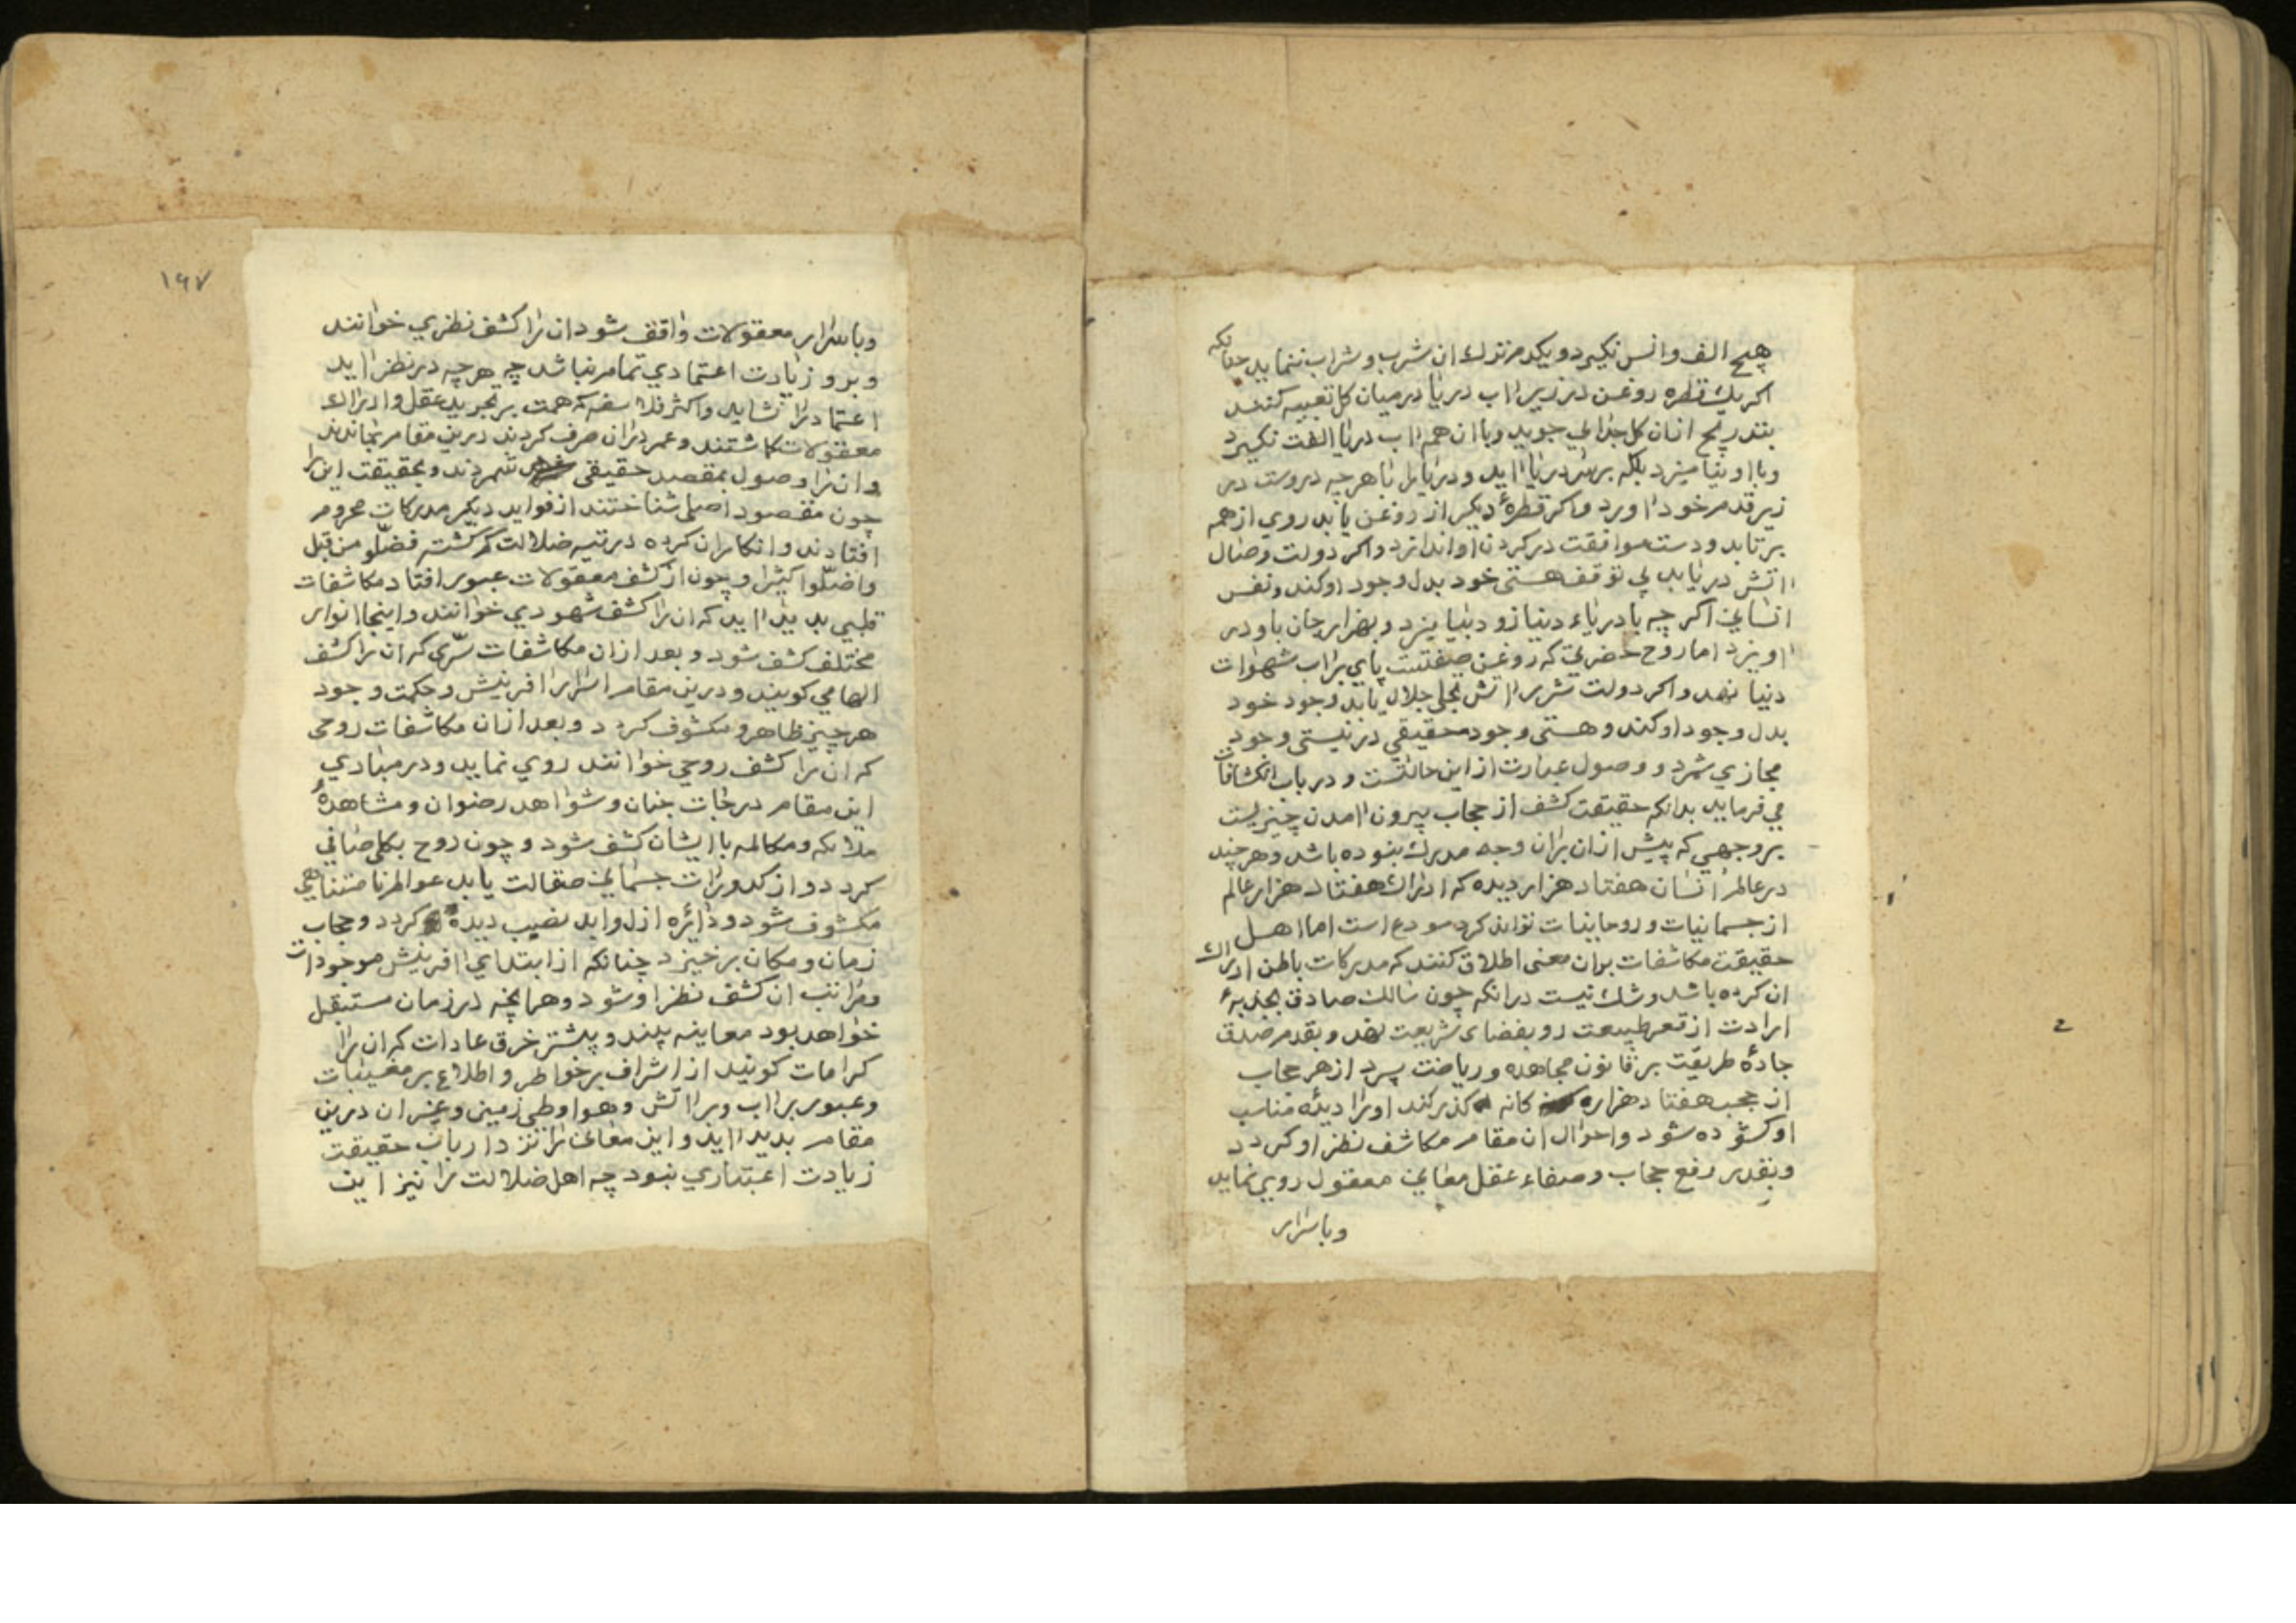 هیچ الف و انس نکیرد و یکدم ترک ان شرب و شراب ننماید چنانکه
اکر یک قطره روغن در زیر اب دریا در میان کل تعبیه کنند
بتدریج ازان کل جدایی جوید و با ان هم اب دریا الفت نکیرد
و با او نیامیزد بلکه بر سر دریا اید و دریا بدل با هر چه دروست در
زیر قدم خود اورد و اکر قطرهٔ دیکر از روغن یابد روی از هم
برتابد و دست موافقت در کردن او اندازد و اکر دولت وصال
اتش دریابد بی توقف هستی خود بدل وجود او کند و نفس
انسانی اکر چه با دریاء دنیا زود بیامیزد و بهزار جان با و در
اویزد اما روح حضرتی که روغن صفتست پای بر اب شهوات
دنیا نهد و اکر دولت شرر اتش تجلی جلال یابد وجود خود
بدل وجود او کند و هستی وجود حقیقی در نیستی وجود
مجازی شمرد و وصول عبارت از این حالتست و در باب انکشافات
می فرماید بدانکه حقیقت کشف از حجاب بیرون امدن چیزیست
بر وجهی که پیش از ان بران وجه مدرک نبوده باشد و هر چند
در عالم انسان هفتاد هزار دیده که ادراک هفتاد هزار عالم
از جسمانیات و روحانیات تواند کرد مودع است اما اهل
حقیقت مکاشفات بران معنی اطلاق کنند که مدرکات باطن ادراک
ان کرده باشد و شک نیست درانکه چون سالک صادق بجذبهٔ
ارادت از قعر طبیعت رو بفضای شریعت نهد و بقدم صدق
جادهٔ طریقت بر قانون مجاهده و ریاضت سپرد از هر حجاب
از حجب هفتاد هزاره کانه کذر کند اورا دیدهٔ مناسب
او کشوده شود و احوال ان مقام مکاشف نظر او کردد
و بقدر رفع حجاب و صفاء عقل معانی معقول روی نماید
و باسرار
۱۶۷
و باسرار معقولات واقف شود ان را کشف نظری خوانند
و برو زیادت اعتمادی تمام نباشد چه هر چه در نظر اید
اعتماد را نشاید و اکثر فلاسفه که همت بر تجرید عقل و ادراک
معقولات کماشتند و عمر دران صرف کردند درین مقام بماندند
و ان را وصول بمقصد حقیقی شمردند و بحقیقت این را
چون مقصود اصلی شناختند از فواید دیکر مدرکات محروم
افتادند و انکار ان کرده در تیه ضلالت کم کشته فضلّو من قبل
و اضلّوا کثیرا و چون از کشف معقولات عبور افتاد مکاشفات
قلبی پدید اید که ان را کشف شهودی خوانند و اینجا انوار
مختلف کشف شود و بعد از ان مکاشفات سرّی که ان را کشف
الهامی کویند و درین مقام اسرار افرینش و حکمت وجود
هر چیز ظاهر و مکشوف کردد و بعد ازان مکاشفات روحی
که ان را کشف روحی خوانند روی نماید و در مبادی
این مقام درجات جنان و شواهد رضوان و مشاهدهٔ
ملائکه و مکالمه با ایشان کشف شود و چون روح بکلی صافی
کردد و از کدورات جسمانی صقالت یابد عوالم نامتناهی
مکشوف شود و دائره ازل و ابد نصیب دیده کردد و حجاب
زمان و مکان برخیزد چنانکه از ابتدای افرینش موجودات
و مراتب ان کشف نظر او شود و هرانچه در زمان مستقبل
خواهد بود معاینه بیند و بیشتر خرق عادات که ان را
کرامات کویند از اشراف بر خواطر و اطلاع بر مغیبات
و عبور بر اب و بر اتش و هوا و طی زمین و غیر ان درین
مقام پدید اید و این معانی را نزد ارباب حقیقت
زیادت اعتباری نبود چه اهل ضلالت را نیز این